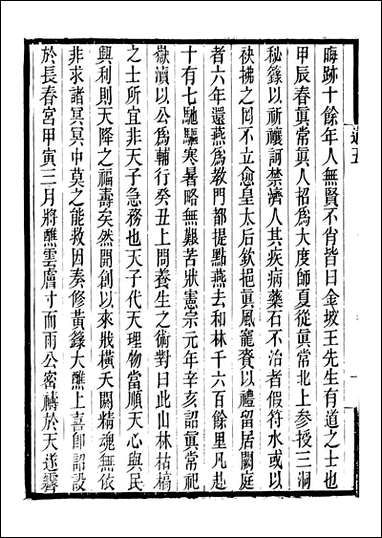 晦跡十餘年人無賢不肖皆曰金坡王先生有道之士也
甲辰春眞常眞人招爲大度師夏從眞常北上參授三洞
秘籙以祈禳訶禁濟人其疾病藥石不治者假符水或以
袂拂之囙不立愈皇太后欽挹眞風寵賚以禮留居闕庭
者六年還燕爲敎門都提點燕去和林千六百餘里凡赴
十有七馳驅寒暑略無艱苦狀憲宗元年辛亥詔眞常祀
嶽瀆以公爲輔行癸丑上問養生之術對曰此山林枯槁
之士所宜非天子急務也天子代天理物當順天心與民
興利則天降之福壽矣然開創以來戕橫夭閼精魂無依
非求諸冥冥中莫之能救因奏修黃籙大醮上喜卽詔設
於長春宮甲寅三月將醮雲膚寸而雨公密禱於天遂霽